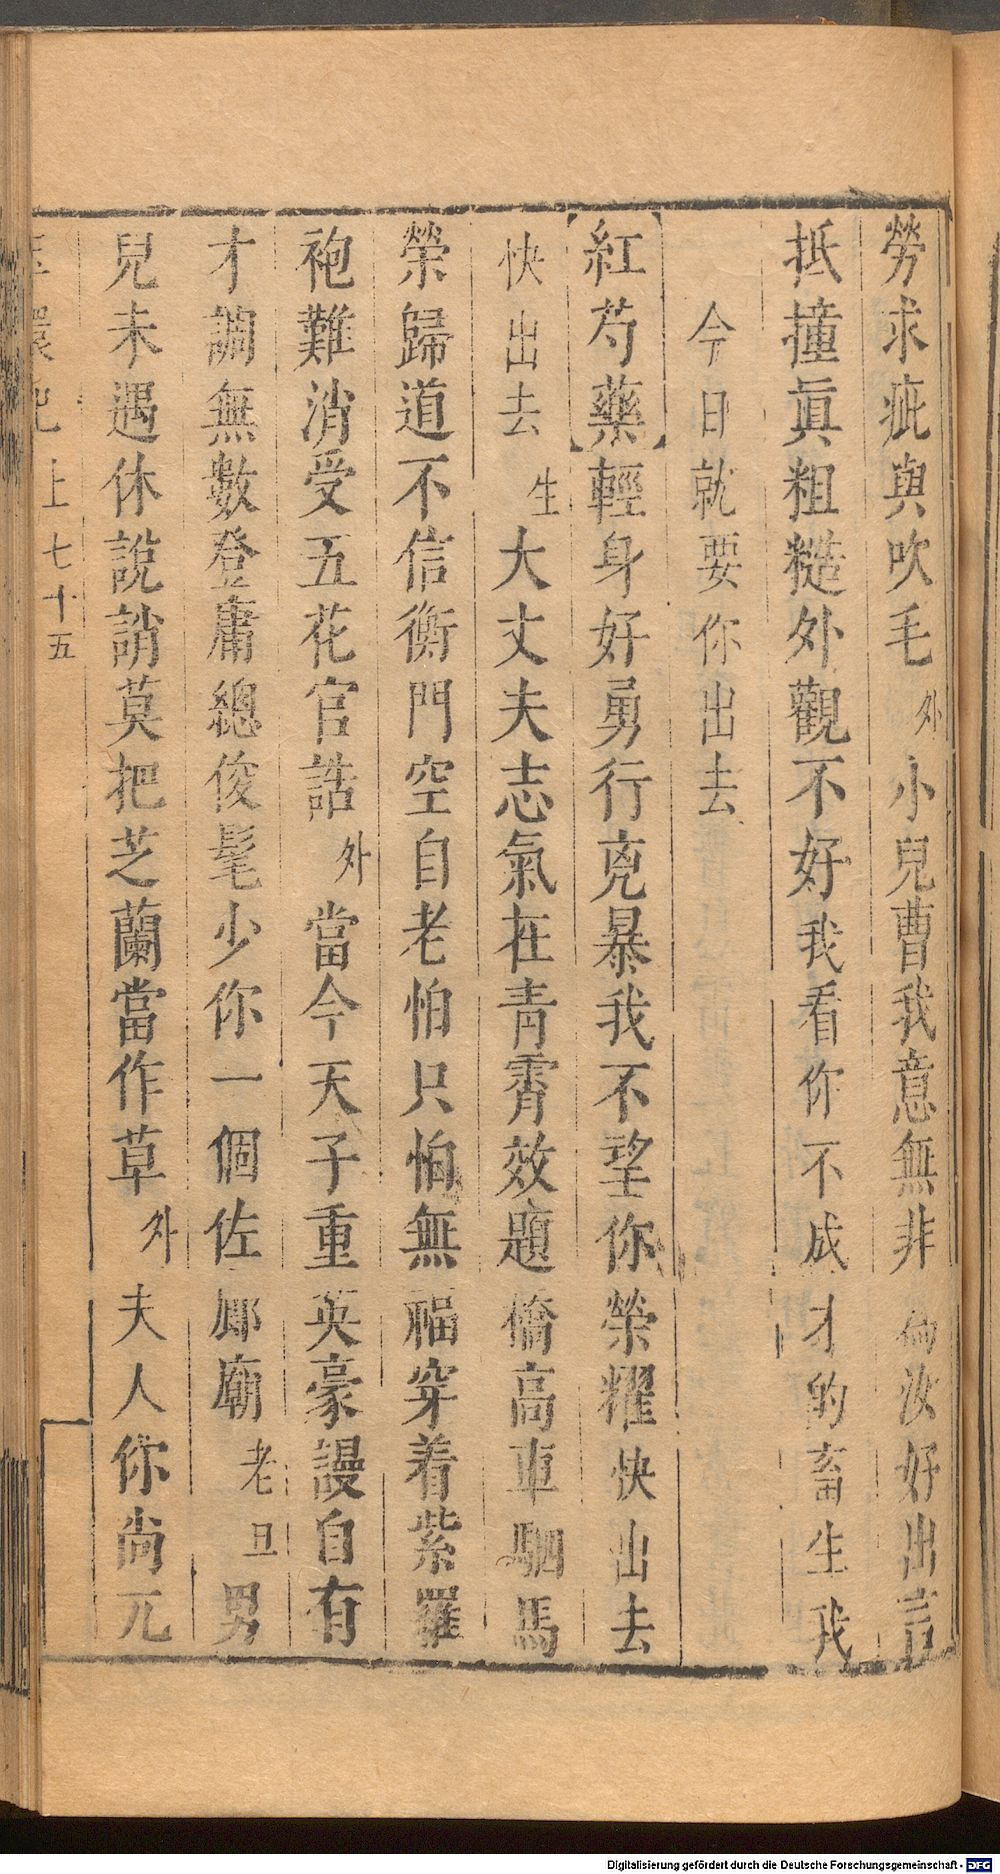 勞求疵與吹毛外小兒曹我意無非 汝好出言
抵撞眞粗糙外觀不好我看你不成才的畜生我
今日就要你出去
【紅芍藥】輕身好勇行兇暴我不望你榮耀快出去
快出去生大丈夫志氣在青霄效題橋高車駟馬
榮歸道不信衡門空自老怕只怕無福穿着紫羅
袍難消受五花官誥外當今天子重英豪謾自有
才調無數登庸總俊髦少你一個佐廊廟老旦男
兒未遇休說誚莫把芝蘭當作草外夫人你尚兀
玉環記 上 七十五
Digitalisierung gefördert durch die Deutsche Forschungsgemeinschaft - DFG